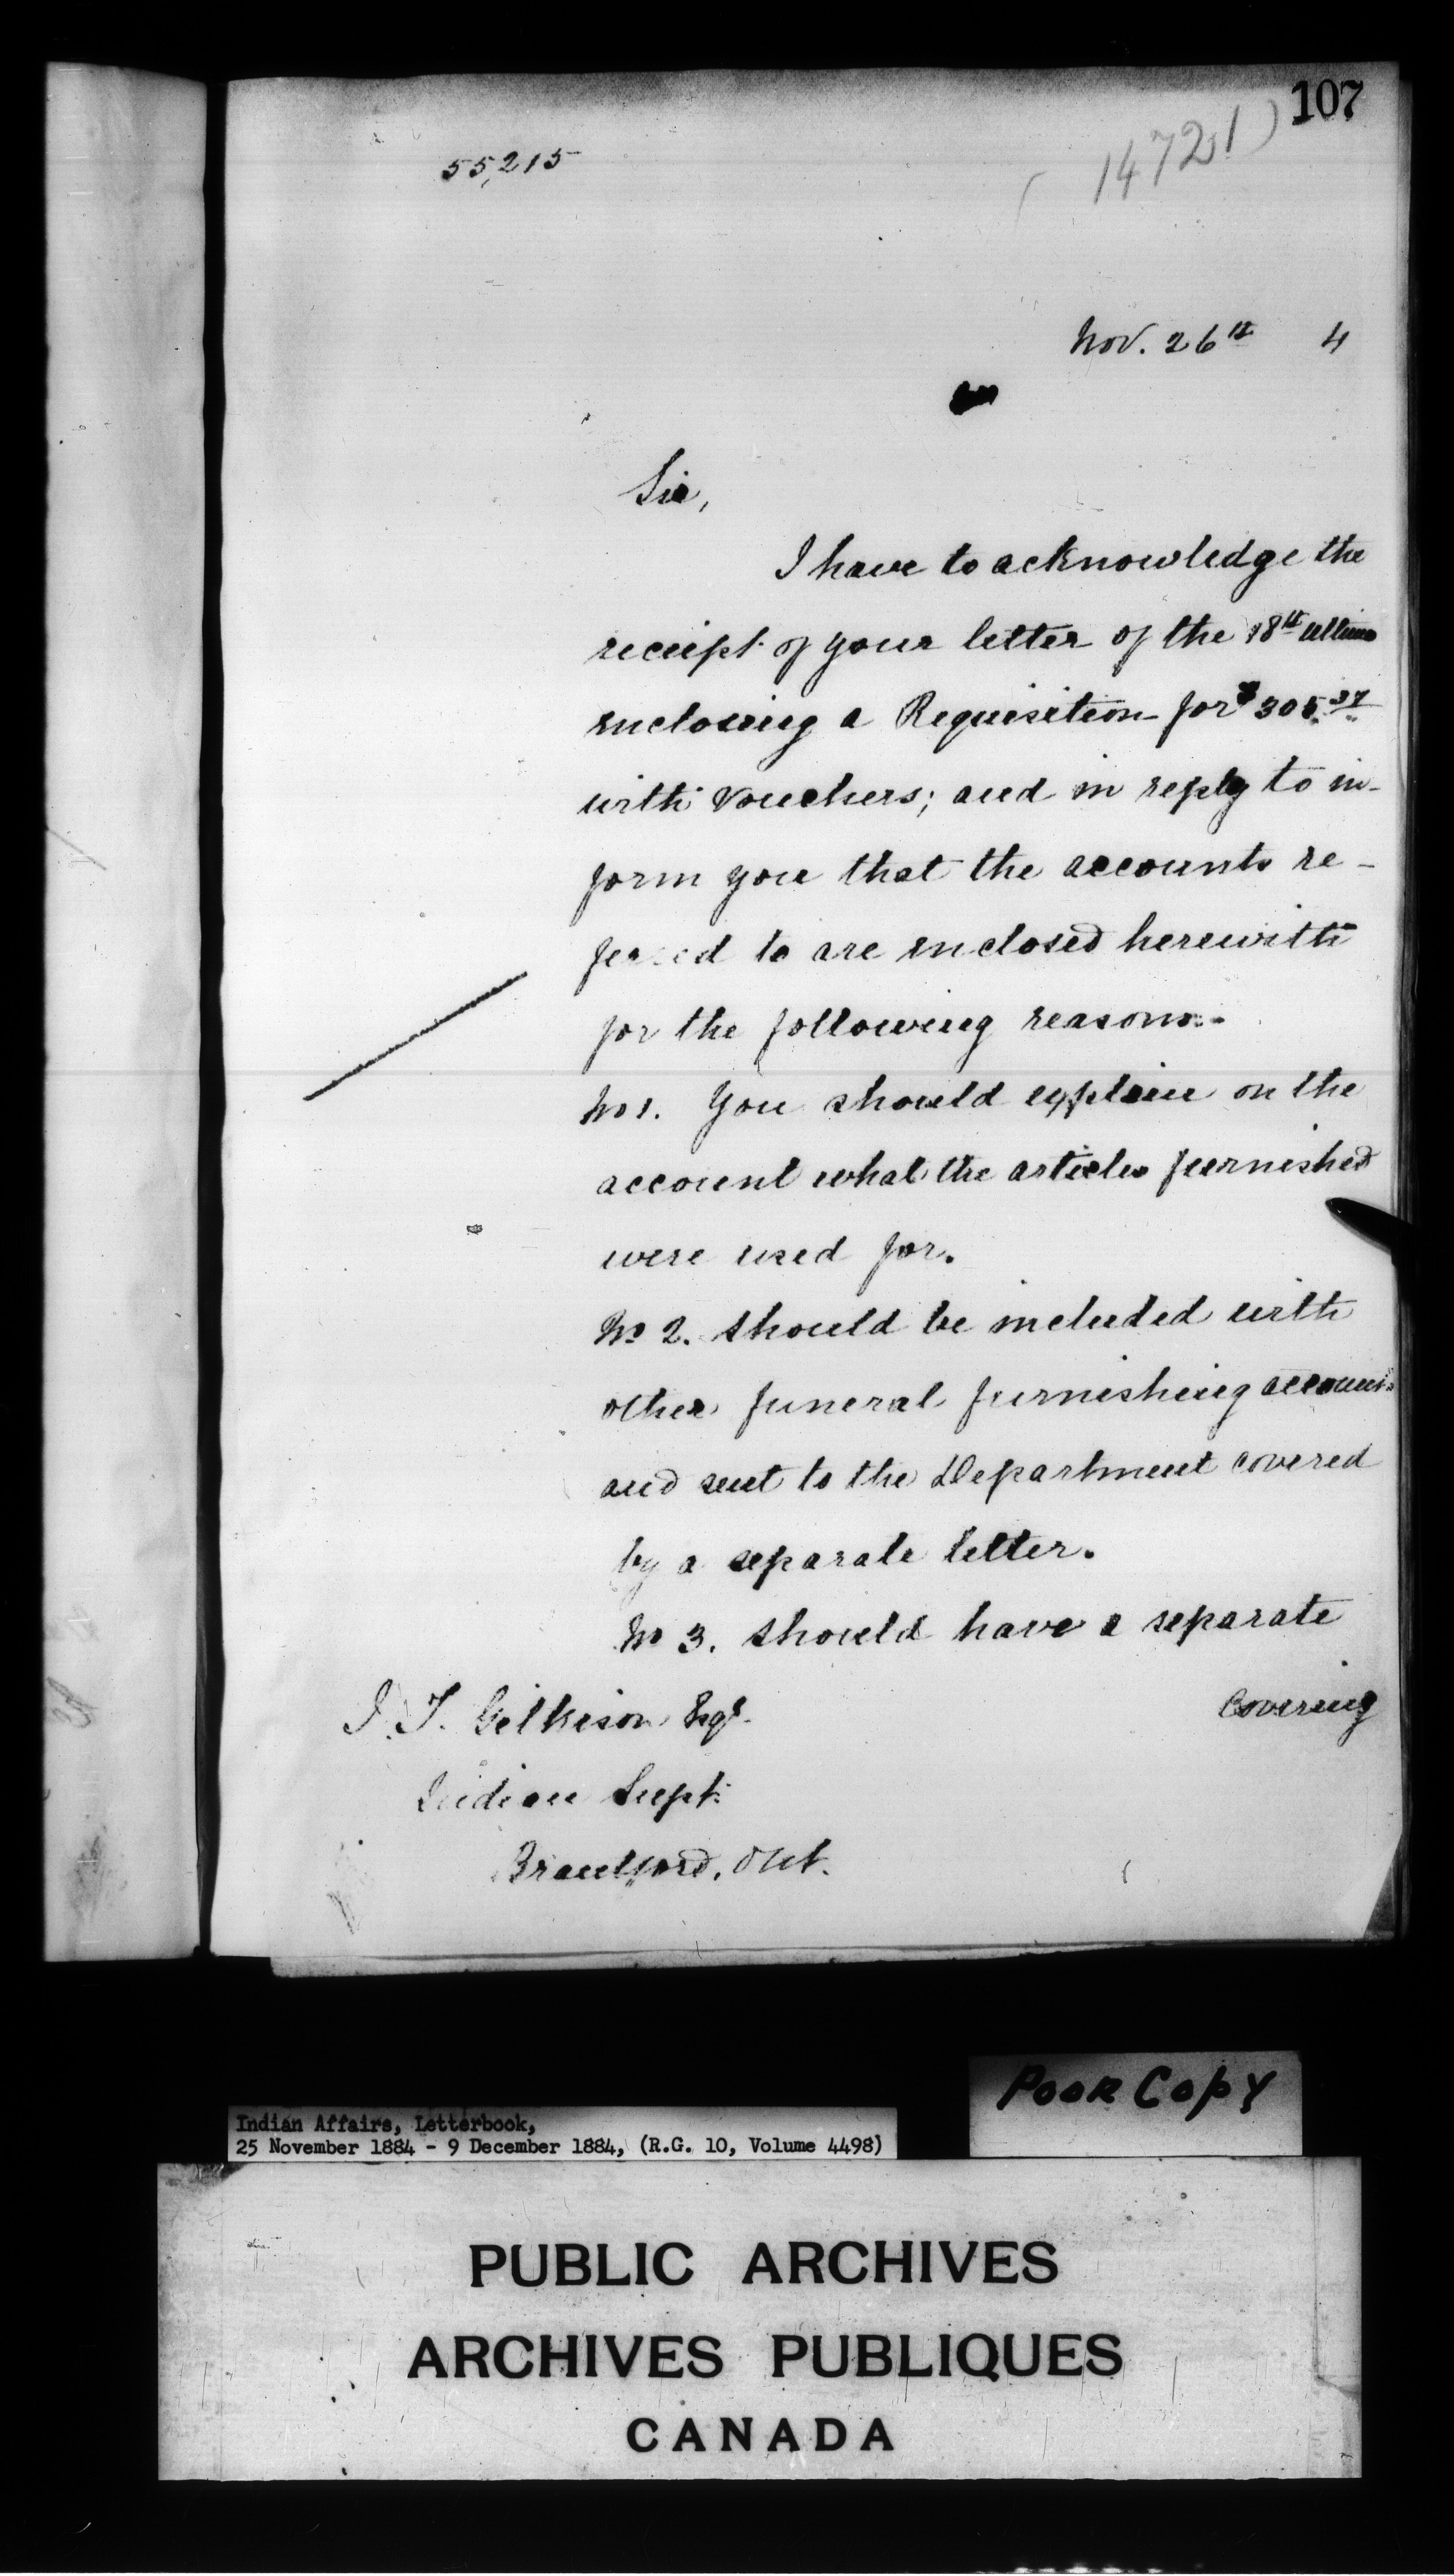 107
14721)
55,215
Nov. 26th 4
Sir,
I have to acknowledge the
receipt of your letter of the 18th ultimo
enclosing a Requisition for $305.37
with vouchers; and in reply to in-
form you that the accounts re-
ferred to are enclosed herewith
for the following reasons:-
No 1. You should explain on the
account what the articles furnished
were used for.
No 2. Should be included with
other funeral furnishing accounts
and sent to the Department covered
by a separate letter.
No 3. Should have a separate
covering
J. T. Gilkison Esqr.
Indian Supt.
Brantford, Ont.
Poor Copy
Indian Affairs, Letterbook,
25 November 1884 - 9 December 1884, (R.G. 10, Volume 4498)
PUBLIC ARCHIVES
ARCHIVES PUBLIQUES
CANADA